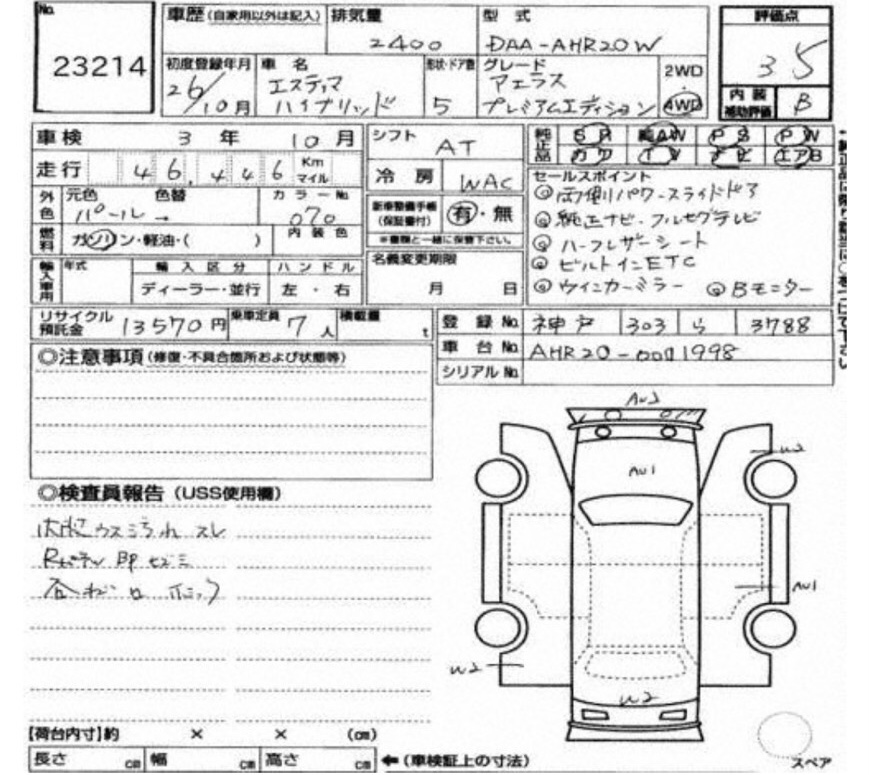 No.
23214
車歴(自家用以外は記入)
排気量
2400
型 式
DAA-AHR20W
評価点
3.5
初度登録年月
26/10月
車 名
エスティマ
ハイブリッド
形状・ドア数
5
グレード
アエラス
プレミアムエディション
2WD
4WD
内装
補助評価
B
車検 3年 10月
シフト AT
純正品
SR 純AW PS PW
カワ TV ナビ エアB
走行 46,446 Km マイル
冷房 WAC
外色
元色 色替 カラーNo.
パール → 070
新車整備手帳
(保証書付)
有・無
※書類と一緒に保管下さい。
セールスポイント
◎両側パワースライドドア
◎純正ナビ・フルセグテレビ
◎ハーフレザーシート
◎ビルトインETC
◎ウインカーミラー ◎Bモニター
燃料 ガソリン・軽油・( ) 内装色
名義変更期限
月 日
輸入車用
年式 輸入区分 ハンドル
ディーラー・並行 左・右
リサイクル
預託金
13570円
乗車定員
7人
積載量
t
登録No. 神戸 303 ら 3788
車台No. AHR20-0071998
シリアルNo.
◎注意事項(修復・不具合箇所および状態等)
◎検査員報告(USS使用欄)
内装ウス汚れ スレ
AU1
W2
AU1
W2
W2
【荷台内寸】約 × × (cm)
長さ cm 幅 cm 高さ cm
←(車検証上の寸法)
スペア